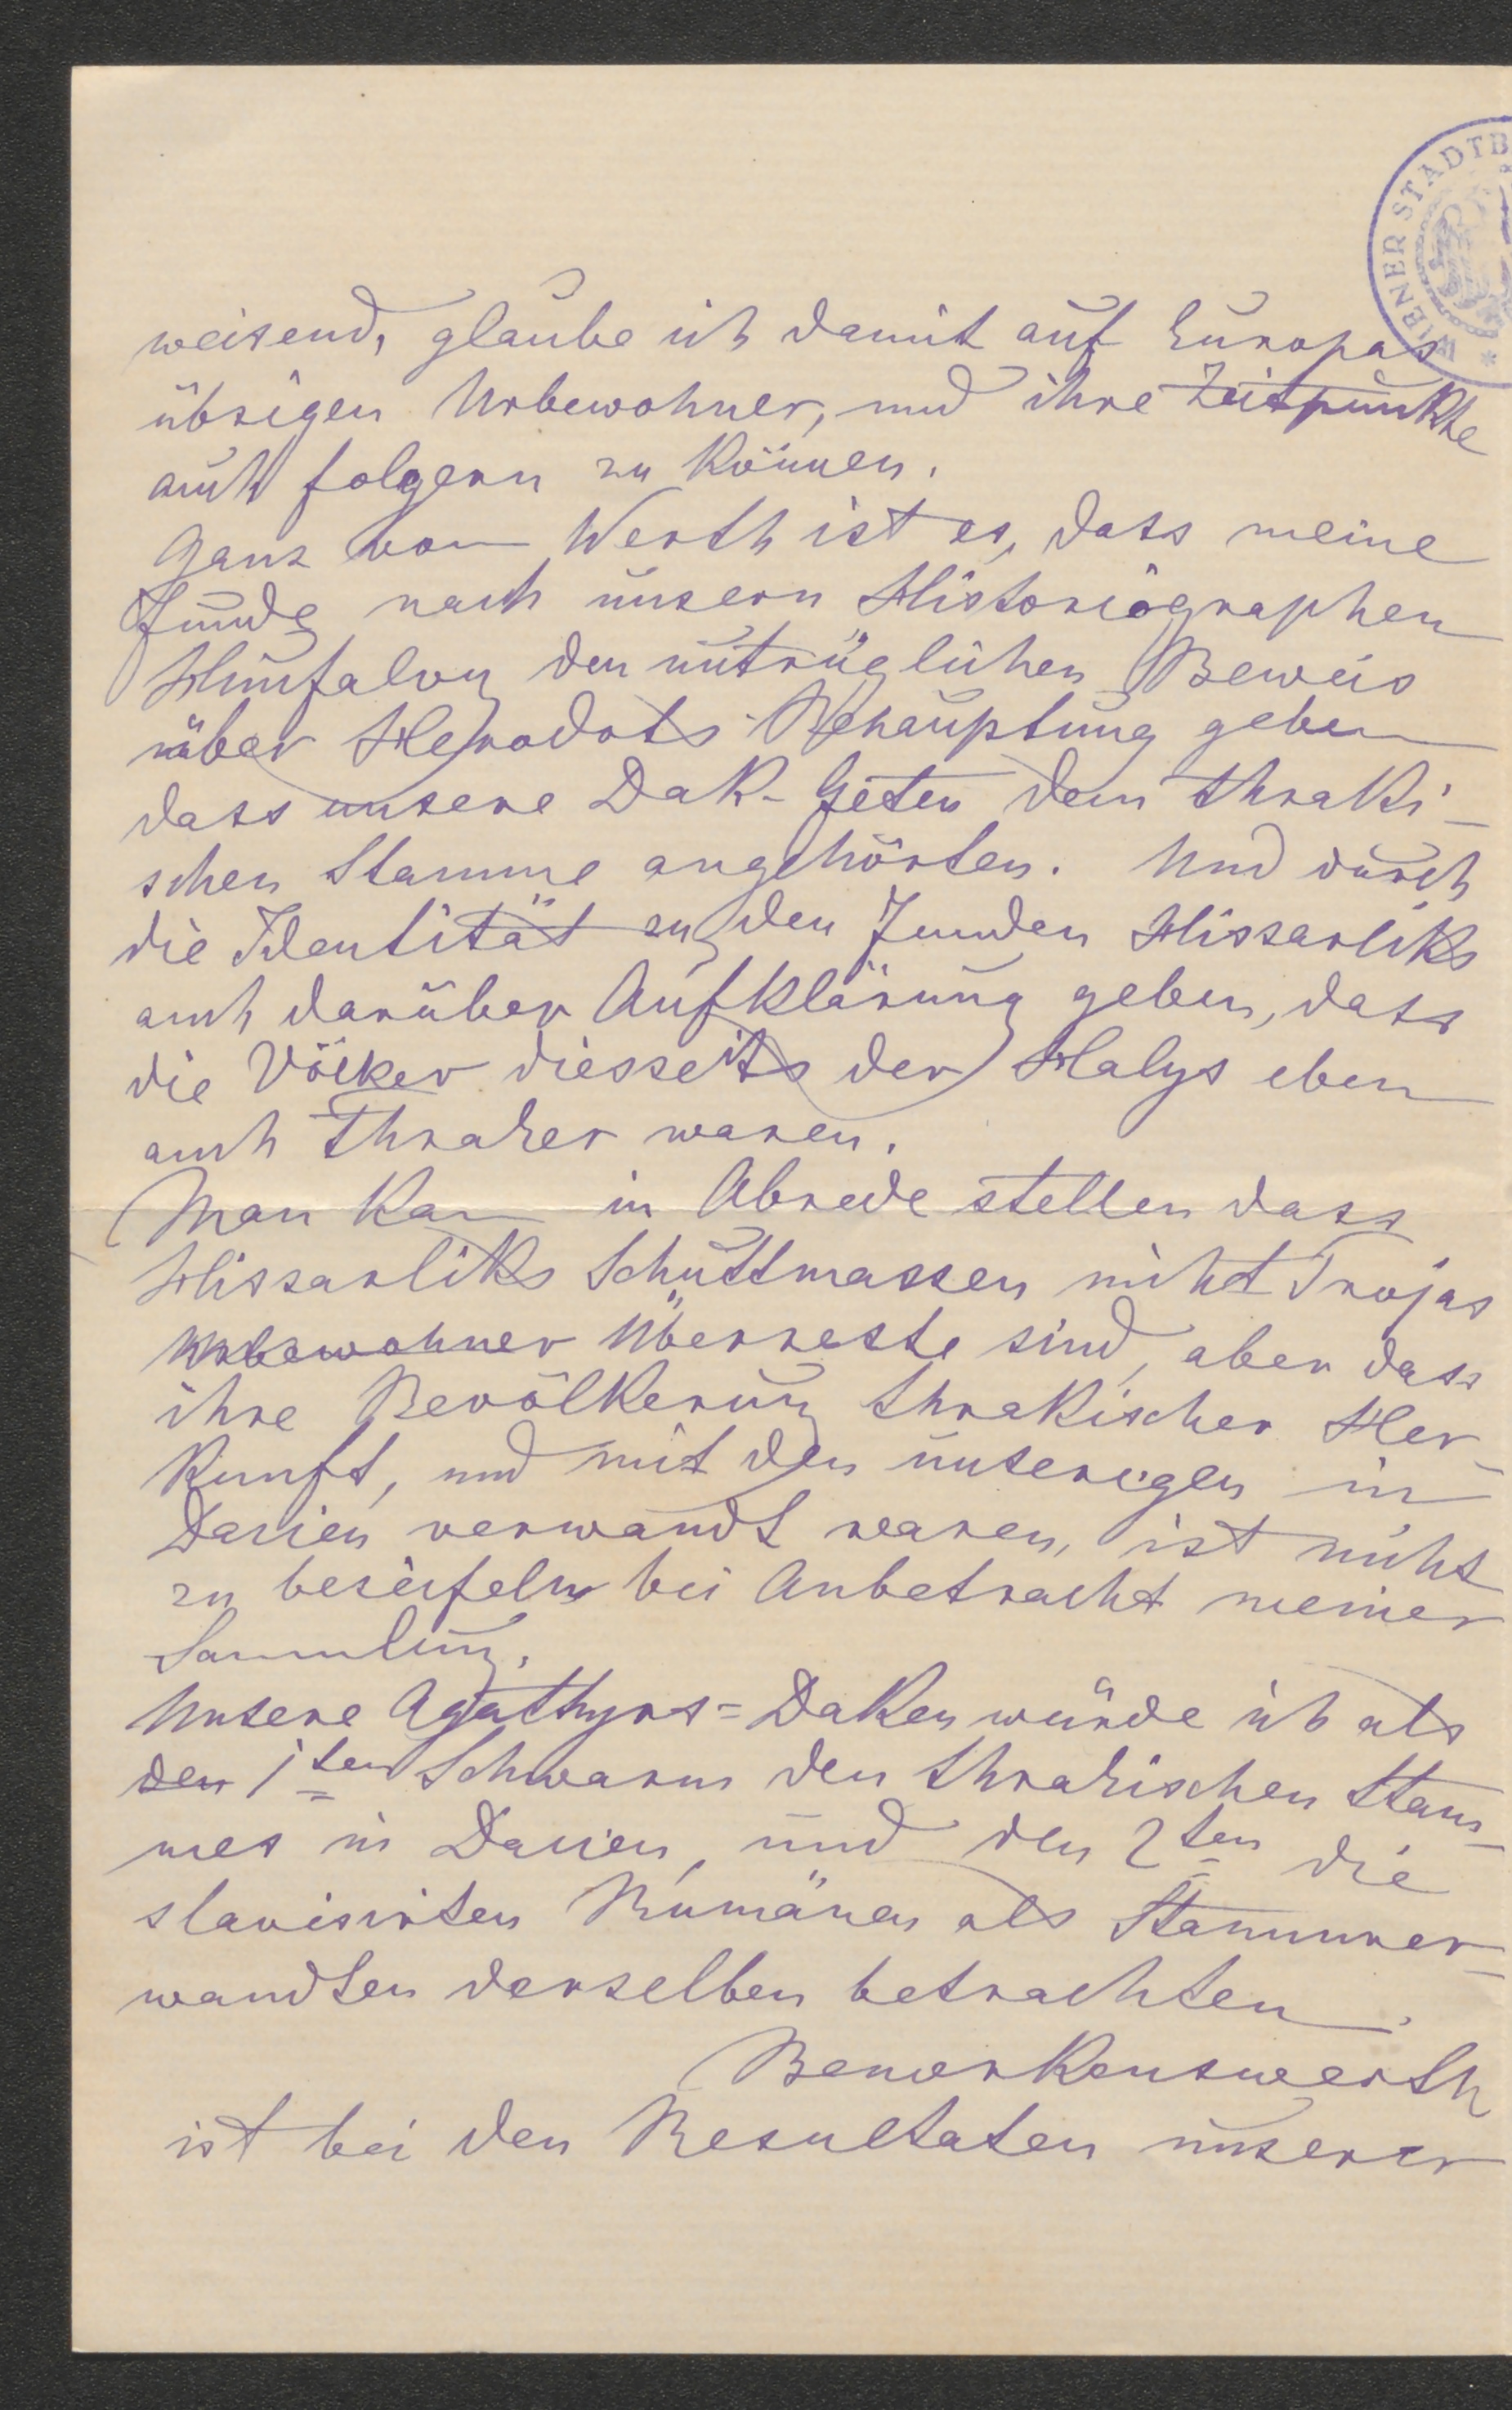 WIENER STADTB
weisend, glaube ich damit auf Europas
übrigen Urbewohner, und ihre Zeitpunkte
auch folgern zu können.
Ganz von Werth ist es, dass meine
Funde nach unsern Historiographen
Hunfalvy den untrüglichen Beweis
über Herodots Behauptung geben
dass unsere Dak-Geten dem thraki-
schen Stamme angehörten. Und durch
die Identität zu den Funden Hissarliks
auch darüber Aufklärung geben, dass
die Völker diesseits der Halys eben
auch Thraker waren.
Man kan in Abrede stellen dass
Hissarliks Schuttmassen nicht Trojas
Urbewohner Überreste sind, aber dass
ihre Bevölkerung thrakischer Her-
kunft, und mit den unserigen in
Dacien verwandt waren, ist nicht
zu bezeifeln bei Anbetracht meiner
Sammlung.
Unsere Agathyrs=Daken würde ich als
den 1ten Schwarm den thrakischen Stam-
mes in Dacien, und den 2ten die
slavisirten Rumänen als Stammver-
wandten derselben betrachten.
Bemerkenswerth
ist bei den Resultaten unserer